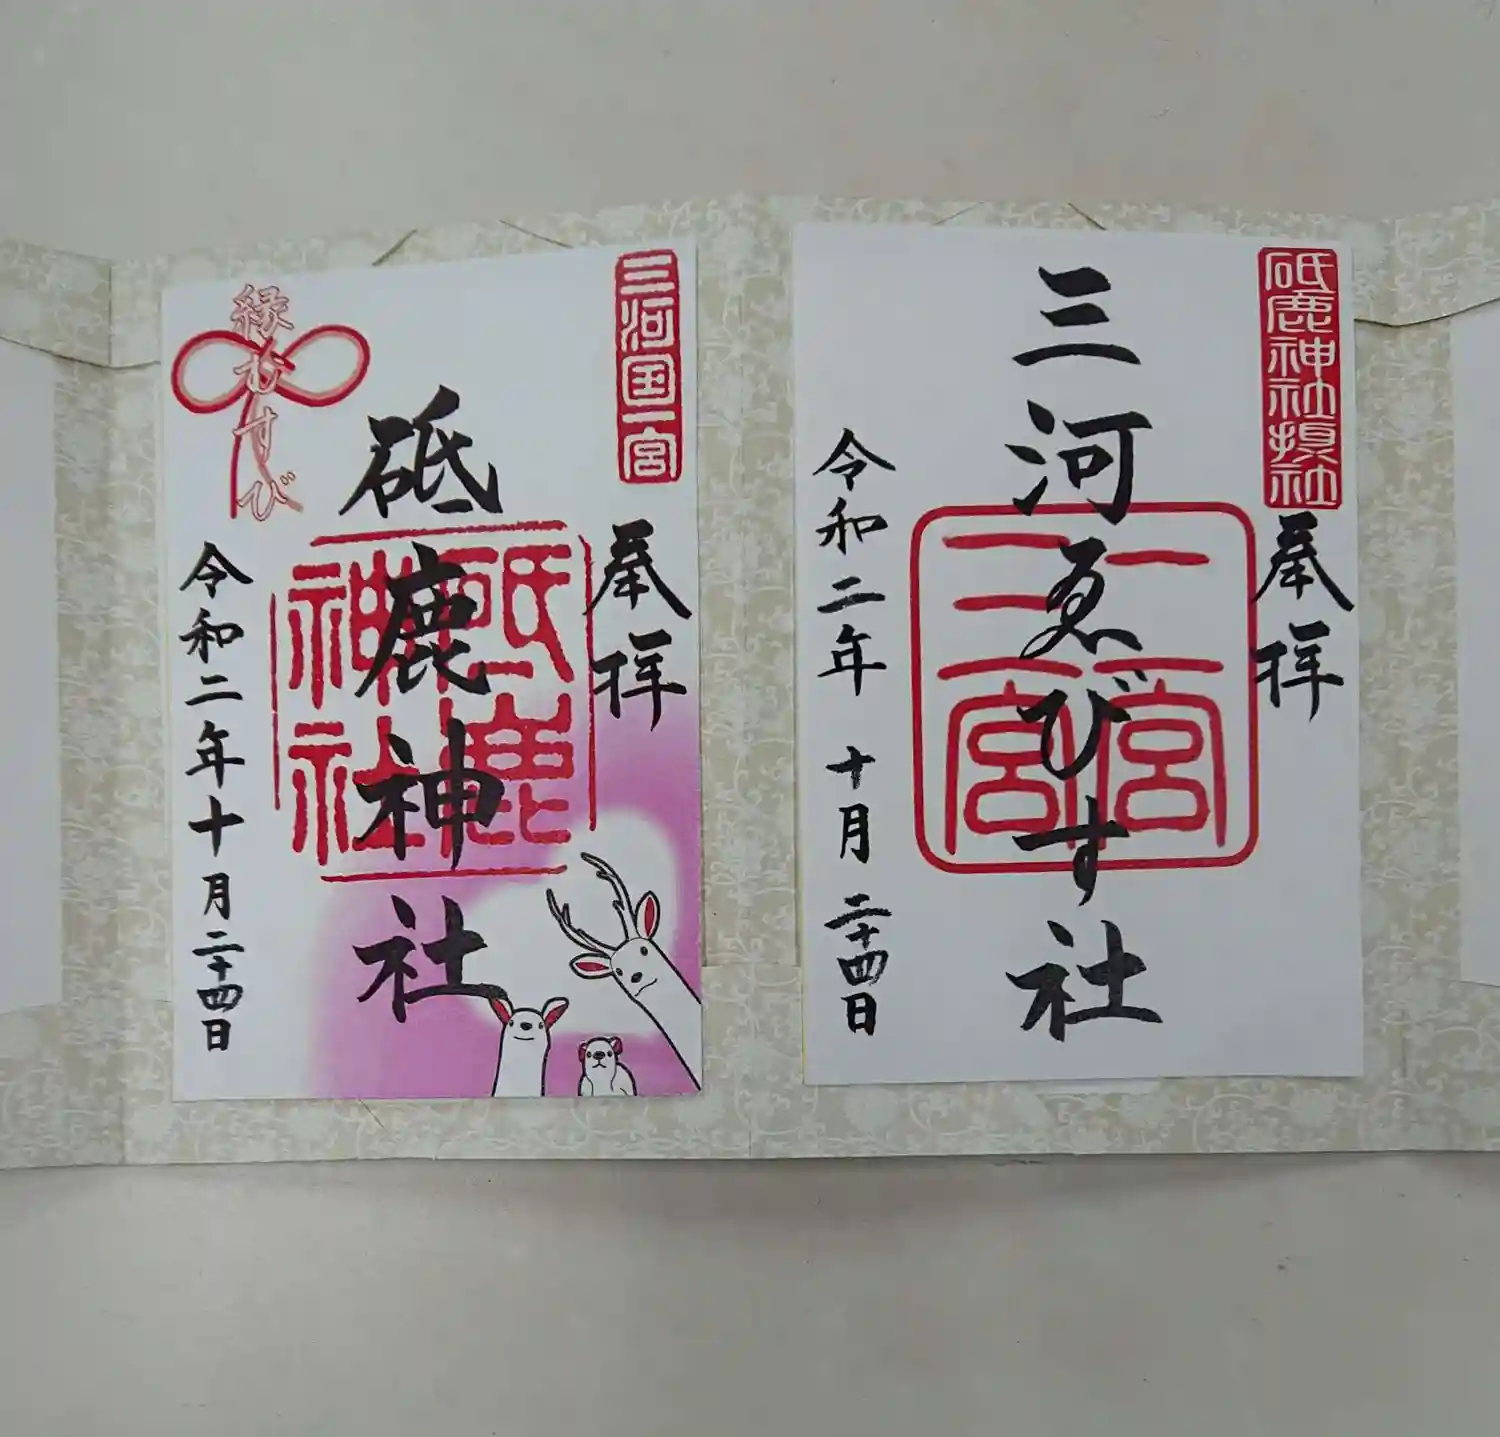 砥鹿神社摂社
奉拝
三河ゑびす社
一宮
二宮
令和二年 十月二十四日
三河国一宮
奉拝
砥鹿神社
砥鹿神社
令和二年十月二十四日
縁むすび